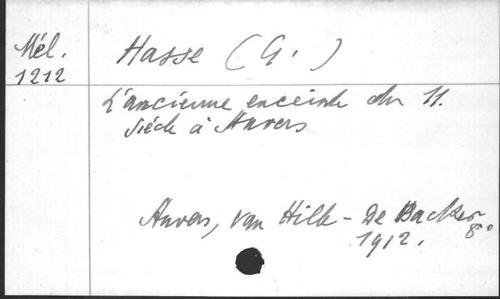 Mél.
1212
Hasse (G.)
L'ancienne enceinte du 11.
siécle à Anvers
Anvers, van Hille - De Backer
1912. 8°